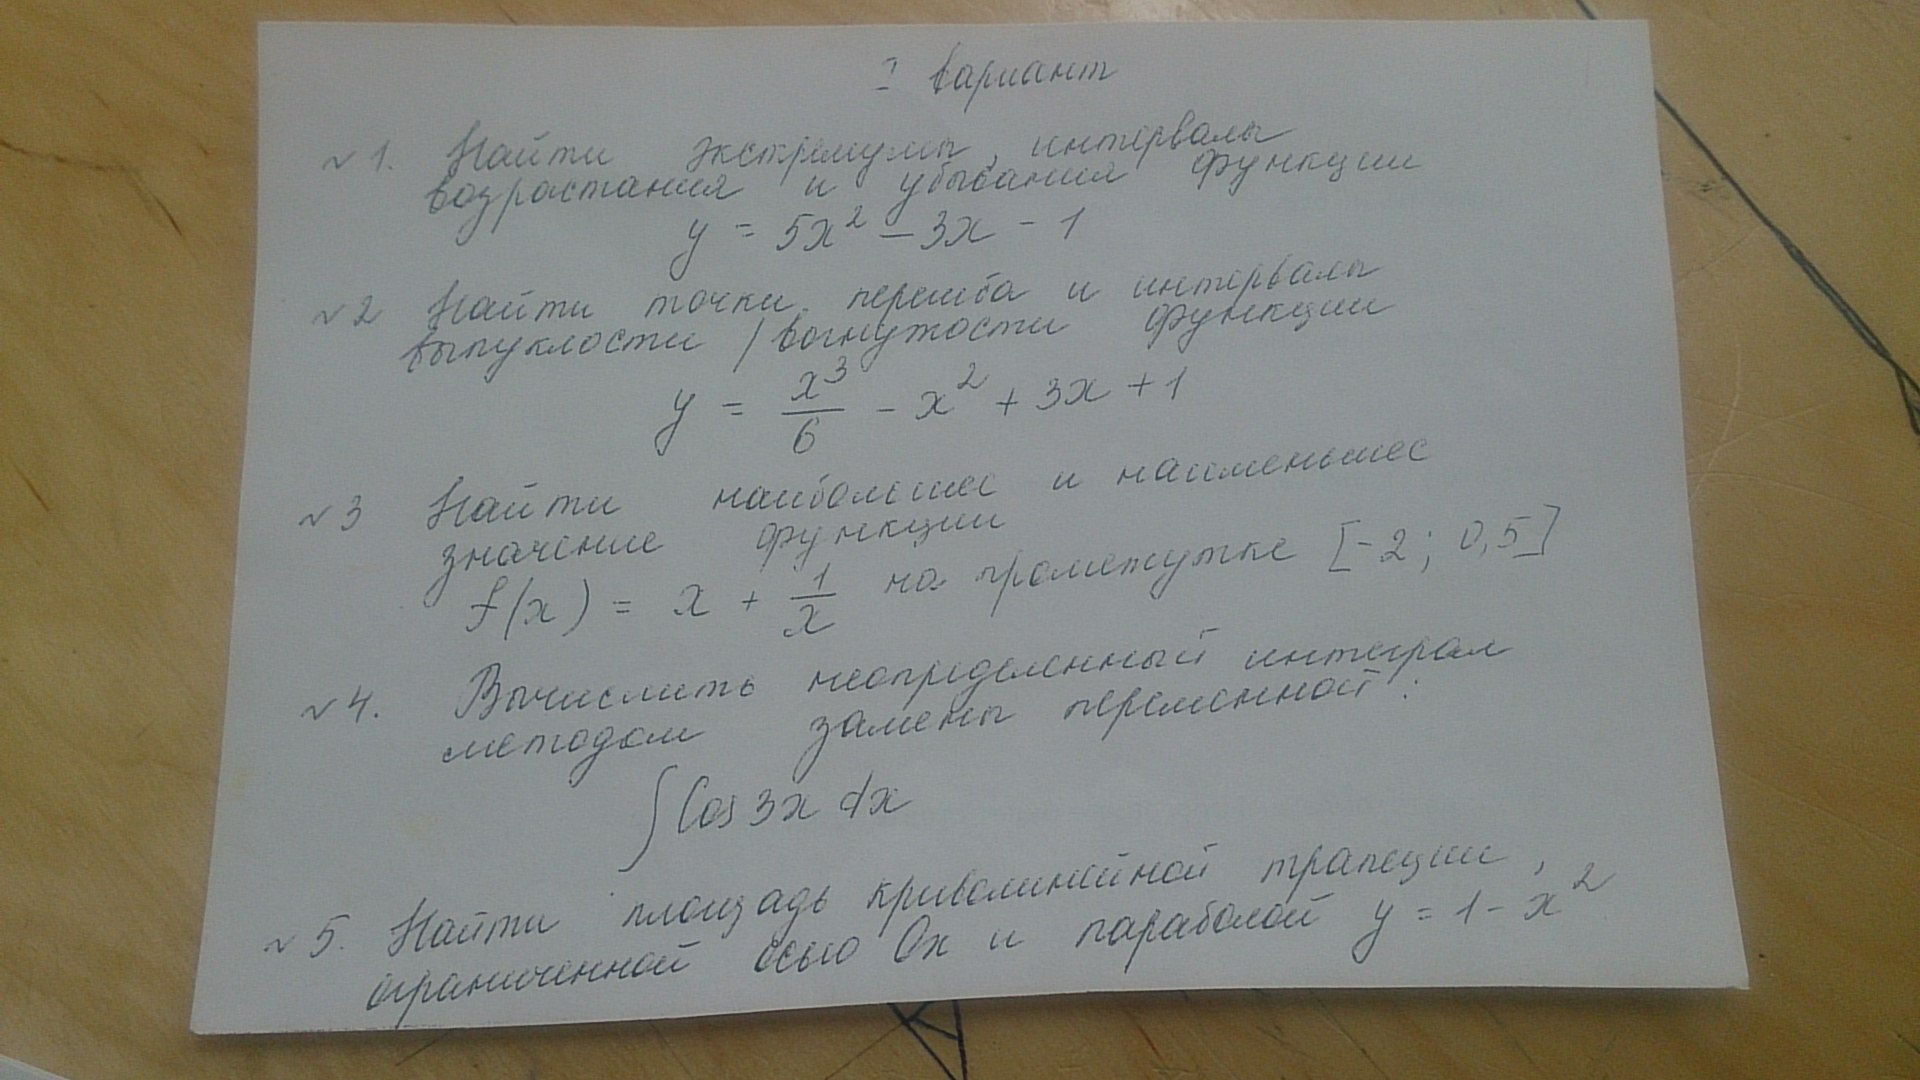 I вариант
№1. Найти экстремумы, интервалы
возрастания и убывания функции
y = 5x² - 3x - 1
№2 Найти точки перегиба и интервалы
выпуклости / вогнутости функции
y = x³/6 - x² + 3x + 1
№3 Найти наибольшее и наименьшее
значение функции
f(x) = x + 1/x на промежутке [-2; 0,5]
№4. Вычислить неопределенный интеграл
методом замены переменной:
∫Cos 3x dx
№5. Найти площадь криволинейной трапеции,
ограниченной осью Ox и параболой y = 1 - x²